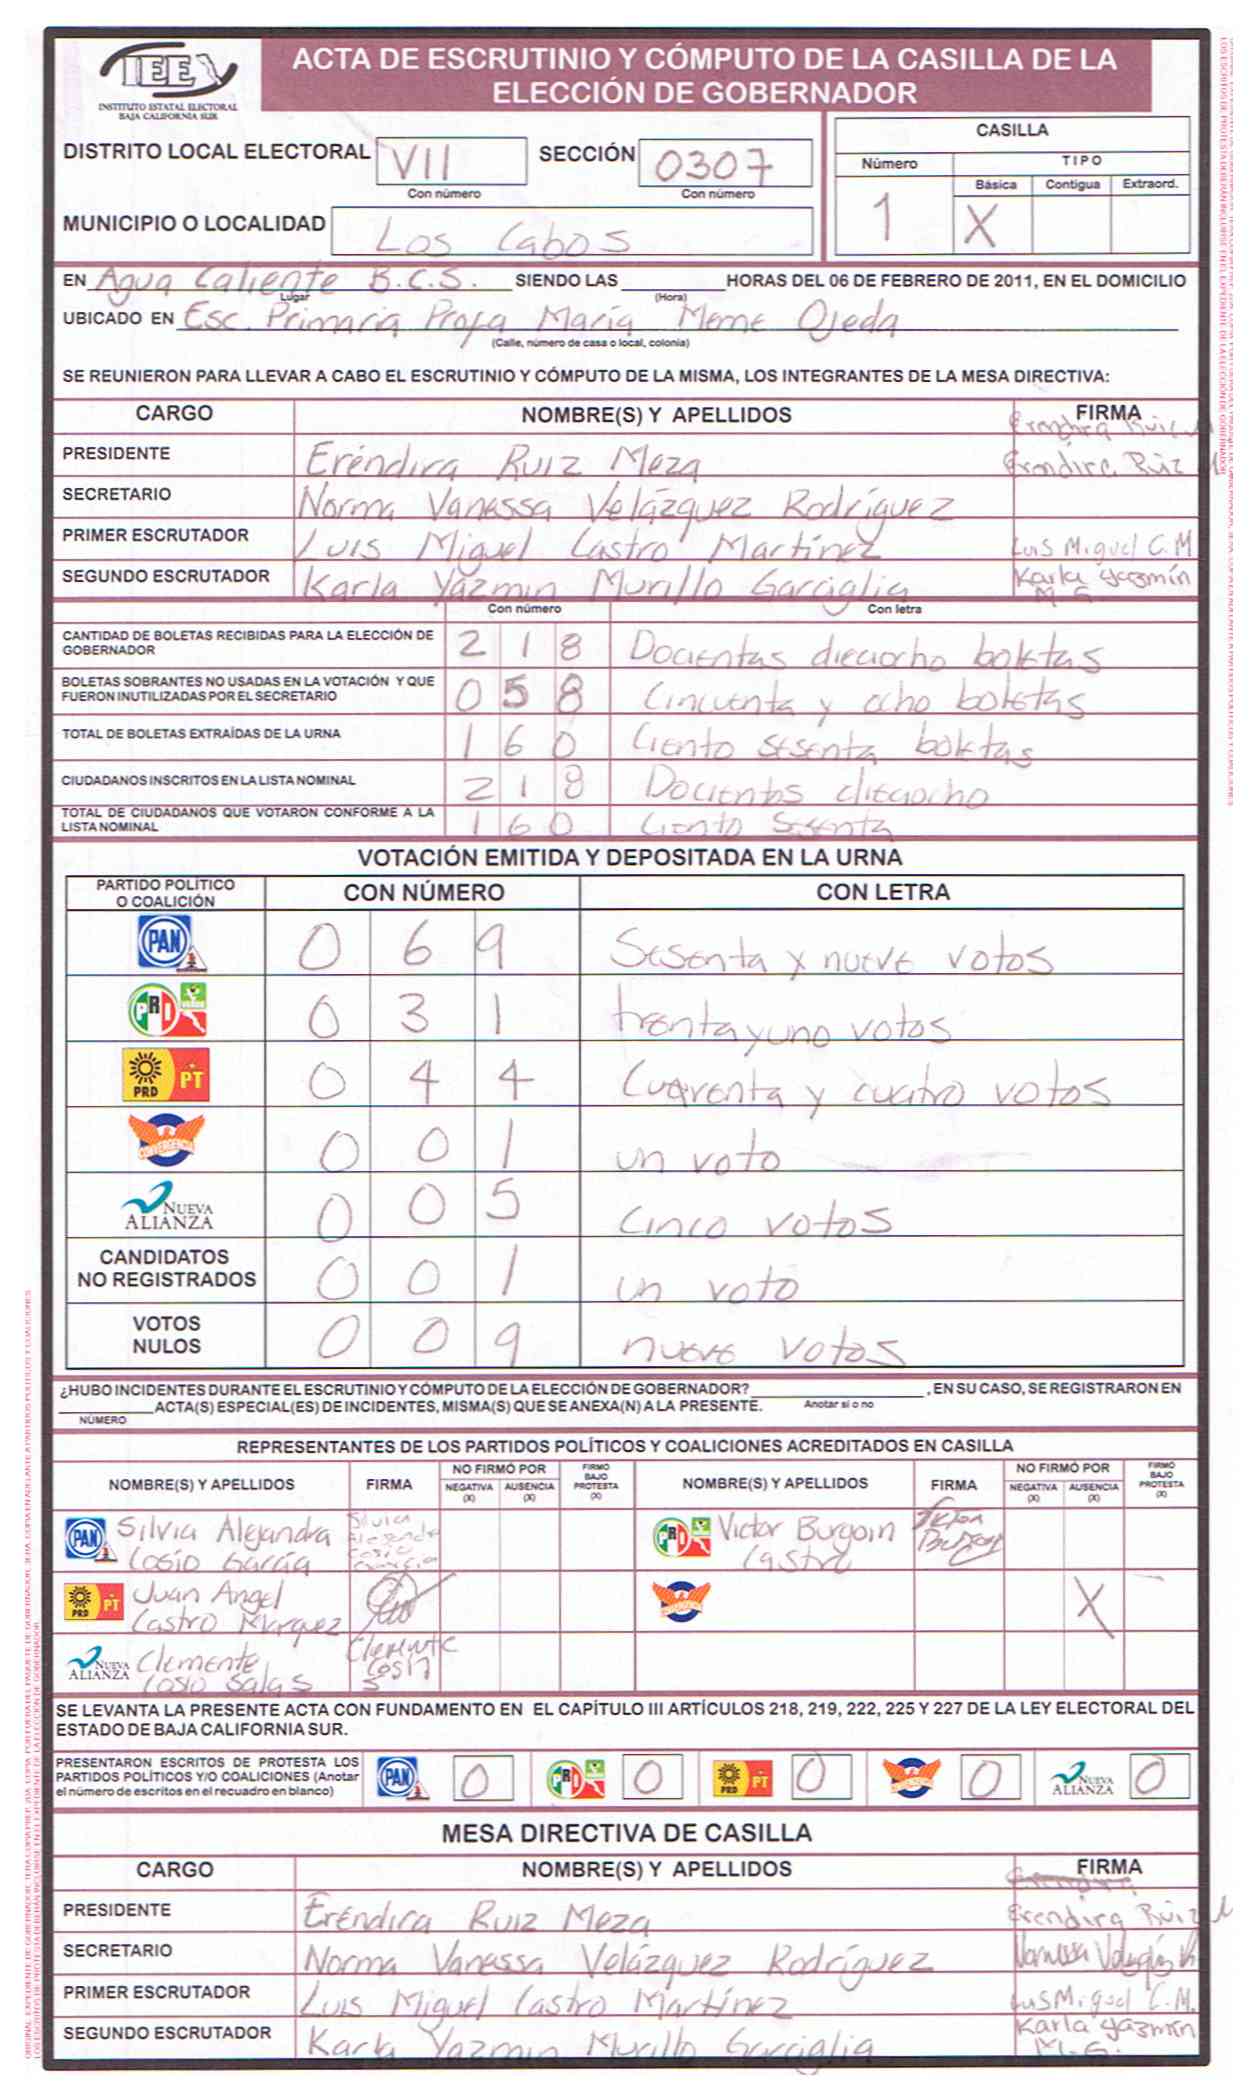 IEE
INSTITUTO ESTATAL ELECTORAL
BAJA CALIFORNIA SUR
ACTA DE ESCRUTINIO Y CÓMPUTO DE LA CASILLA DE LA
ELECCIÓN DE GOBERNADOR
DISTRITO LOCAL ELECTORAL VII SECCIÓN 0307
Con número Con número
MUNICIPIO O LOCALIDAD Los Cabos
CASILLA
Número TIPO
Básica Contigua Extraord.
1 X
EN Agua Caliente B.C.S. SIENDO LAS HORAS DEL 06 DE FEBRERO DE 2011, EN EL DOMICILIO
Lugar (Hora)
UBICADO EN Esc. Primaria Profa María Meme Ojeda
(Calle, número de casa o local, colonia)
SE REUNIERON PARA LLEVAR A CABO EL ESCRUTINIO Y CÓMPUTO DE LA MISMA, LOS INTEGRANTES DE LA MESA DIRECTIVA:
CARGO NOMBRE(S) Y APELLIDOS FIRMA
Erendira Ruiz M
PRESIDENTE Eréndira Ruiz Meza Erendira Ruiz M
SECRETARIO Norma Vanessa Velázquez Rodríguez
PRIMER ESCRUTADOR Luis Miguel Castro Martínez Luis Miguel C.M
SEGUNDO ESCRUTADOR Karla Yazmin Murillo Garciglia Karla Yazmín
M.G.
Con número Con letra
CANTIDAD DE BOLETAS RECIBIDAS PARA LA ELECCIÓN DE
GOBERNADOR 2 1 8 Docientas dieciocho boletas
BOLETAS SOBRANTES NO USADAS EN LA VOTACIÓN Y QUE
FUERON INUTILIZADAS POR EL SECRETARIO 0 5 8 Cincuenta y ocho boletas
TOTAL DE BOLETAS EXTRAÍDAS DE LA URNA 1 6 0 Ciento sesenta boletas
CIUDADANOS INSCRITOS EN LA LISTA NOMINAL 2 1 8 Docientos dieciocho
TOTAL DE CIUDADANOS QUE VOTARON CONFORME A LA
LISTA NOMINAL 1 6 0 Ciento Sesenta
VOTACIÓN EMITIDA Y DEPOSITADA EN LA URNA
PARTIDO POLÍTICO
O COALICIÓN CON NÚMERO CON LETRA
PAN 0 6 9 Sesenta y nueve votos
PRI VERDE 0 3 1 trenta y uno votos
PRD PT 0 4 4 Cuarenta y cuatro votos
CONVERGENCIA 0 0 1 un voto
NUEVA
ALIANZA 0 0 5 Cinco votos
CANDIDATOS
NO REGISTRADOS 0 0 1 un voto
VOTOS
NULOS 0 0 9 nueve votos
¿HUBO INCIDENTES DURANTE EL ESCRUTINIO Y CÓMPUTO DE LA ELECCIÓN DE GOBERNADOR? , EN SU CASO, SE REGISTRARON EN
ACTA(S) ESPECIAL(ES) DE INCIDENTES, MISMA(S) QUE SE ANEXA(N) A LA PRESENTE. Anotar si o no
NÚMERO
REPRESENTANTES DE LOS PARTIDOS POLÍTICOS Y COALICIONES ACREDITADOS EN CASILLA
NOMBRE(S) Y APELLIDOS FIRMA NO FIRMÓ POR NEGATIVA (X) AUSENCIA (X) FIRMÓ BAJO PROTESTA (X) NOMBRE(S) Y APELLIDOS FIRMA NO FIRMÓ POR NEGATIVA (X) AUSENCIA (X) FIRMÓ BAJO PROTESTA (X)
PAN Silvia Alejandra Silvia Alejandra PRI Victor Burgoin
Cosío García Cosio Garcia Castro
PRD PT Juan Angel CONVERGENCIA X
Castro Marquez
NUEVA ALIANZA Clemente Clemente
Cosio Salas Cosio S
SE LEVANTA LA PRESENTE ACTA CON FUNDAMENTO EN EL CAPÍTULO III ARTÍCULOS 218, 219, 222, 225 Y 227 DE LA LEY ELECTORAL DEL
ESTADO DE BAJA CALIFORNIA SUR.
PRESENTARON ESCRITOS DE PROTESTA LOS
PARTIDOS POLÍTICOS Y/O COALICIONES (Anotar
el número de escritos en el recuadro en blanco)
PAN 0 PRI 0 PRD PT 0 CONVERGENCIA 0 NUEVA ALIANZA 0
MESA DIRECTIVA DE CASILLA
CARGO NOMBRE(S) Y APELLIDOS FIRMA
PRESIDENTE Eréndira Ruiz Meza Erendira Ruiz M
SECRETARIO Norma Vanessa Velázquez Rodríguez
PRIMER ESCRUTADOR Luis Miguel Castro Martínez Luis Miguel C.M.
SEGUNDO ESCRUTADOR Karla Yazmin Murillo Garciglia Karla Yazmín
M.G.